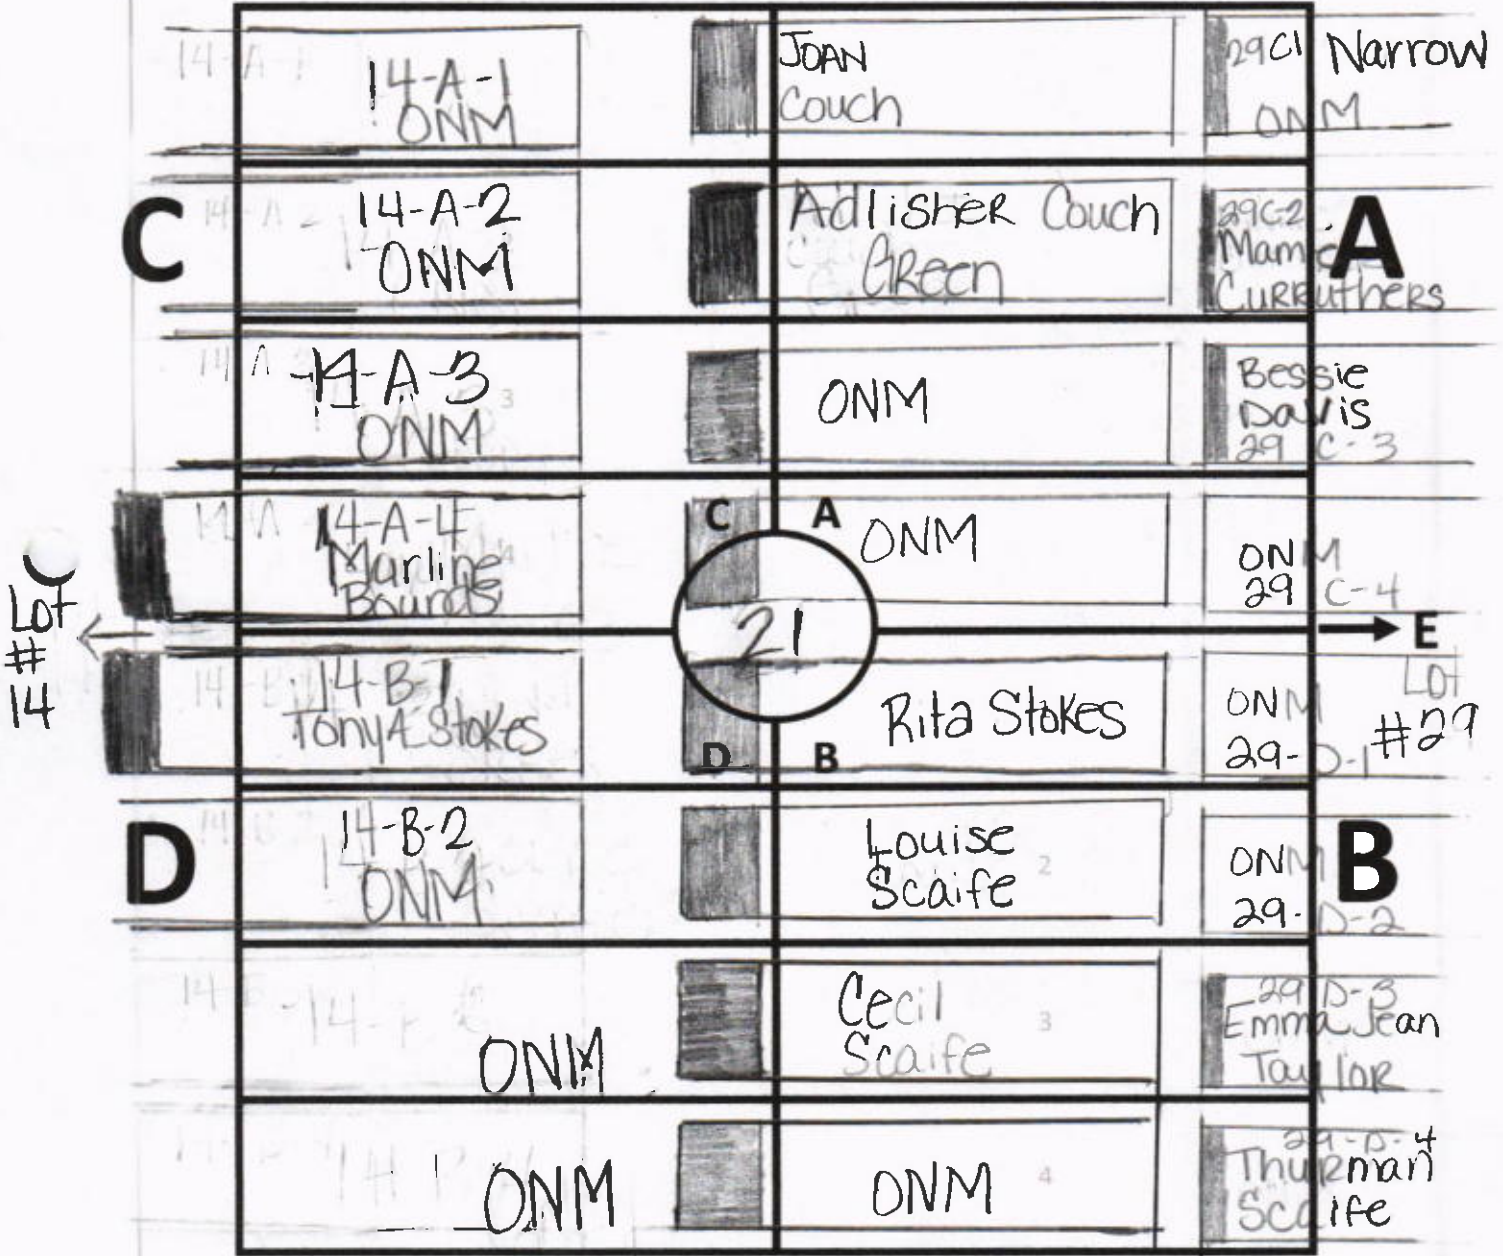 14-A-1
ONM
JOAN
Couch
29C1 Narrow
ONM
C
14-A-2
ONM
AdlisheR Couch
GReen
29C-2
Mamie
CuRRutheRs
A
14-A-3
ONM
ONM
Bessie
Davis
29 C-3
3
14-A-4
Marline
Bounds
C A
ONM
ONM
29 C-4
Lot
#
14
21
E
14-B-1
TonyA Stokes
D B
Rita Stokes
ONM
29-D-1
Lot
#29
D
14-B-2
ONM
Louise
Scaife
2
ONM
29-D-2
B
ONM
Cecil
Scaife
3
29 D-3
Emma Jean
TayloR
ONM
ONM
4
29-D-4
ThuRman
Scaife